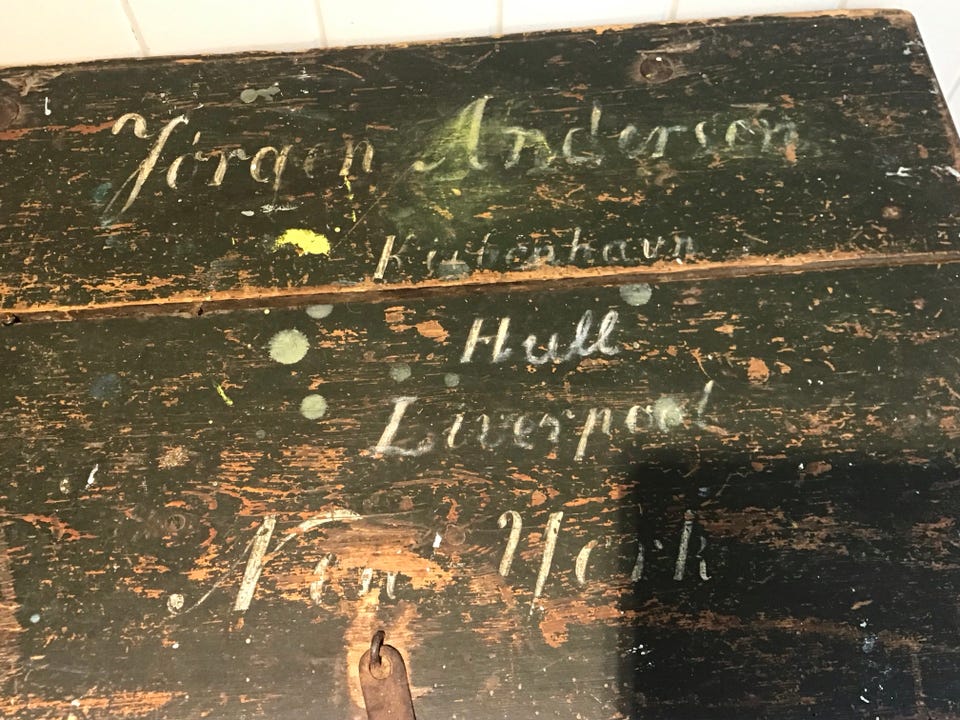 Jörgen Andersen
Kiöbenhavn
Hull
Liverpool
New York